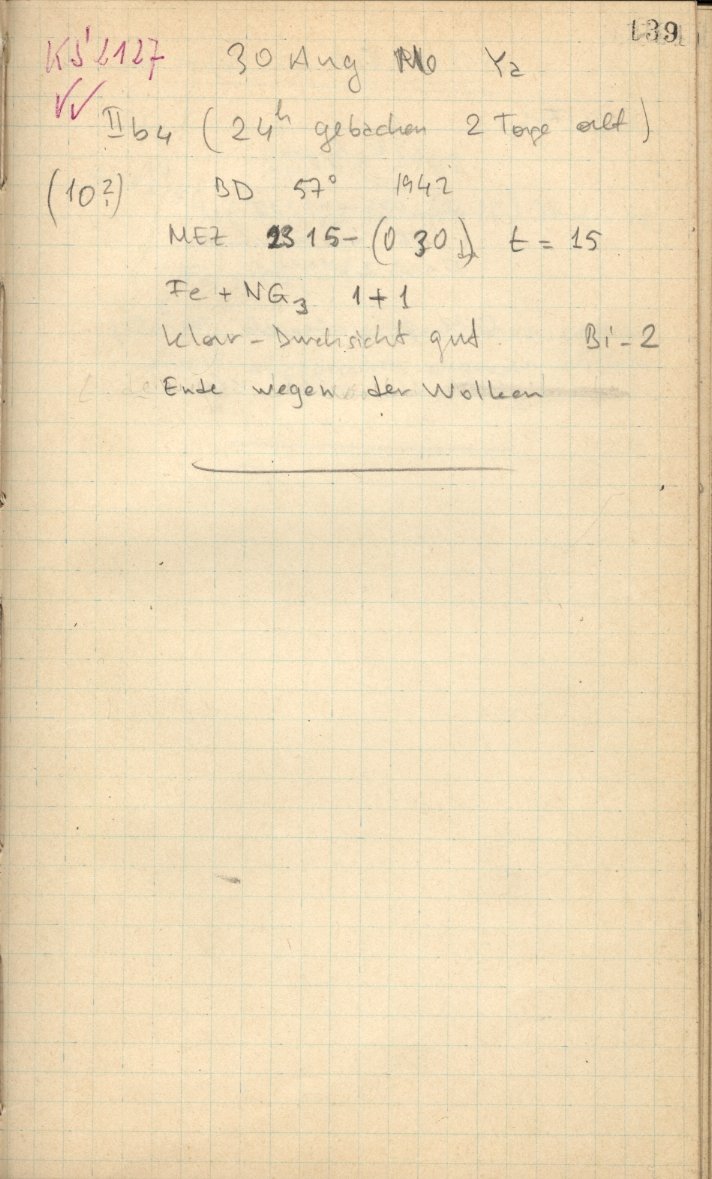 139
KS 2127 30 Aug Mo Ya
IIb4 (24h gebacken 2 Tage alt)
(10?) BD 57° 1942
MEZ 23 15-(0 30) t = 15
Fe + NG3 1+1
klar - Durchsicht gut Bi-2
Ende wegen der Wolken